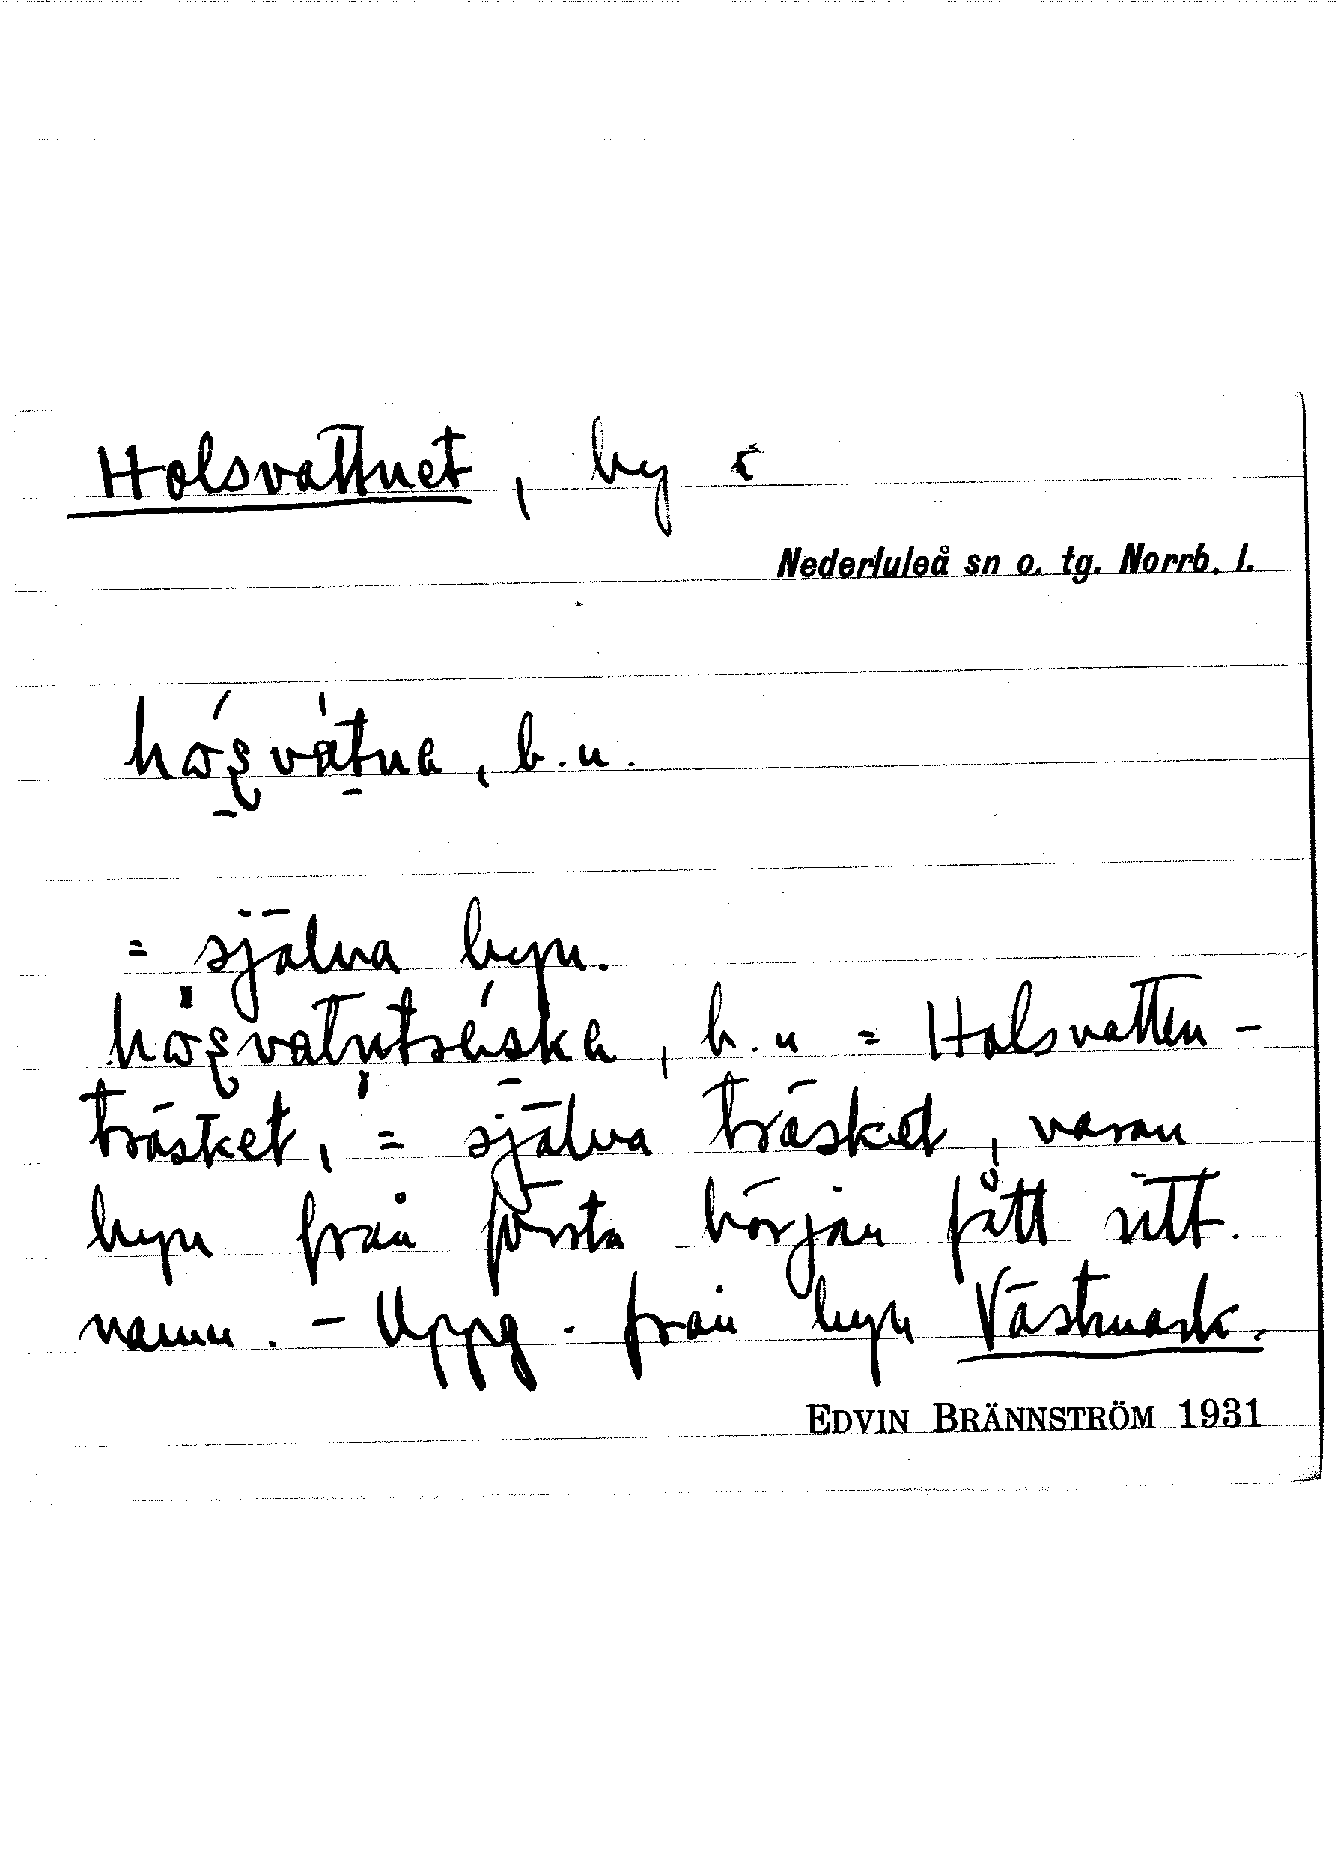 Holsvattnet, by i
Nederluleå sn o. tg. Norrb. l.
, b.u.
= själva byn.
, b.u = Holsvatten-
träsket, = själva träsket, varav
byn från första början fått sitt
namn. - Uppg. från byn Västmark.
EDVIN BRÄNNSTRÖM 1931